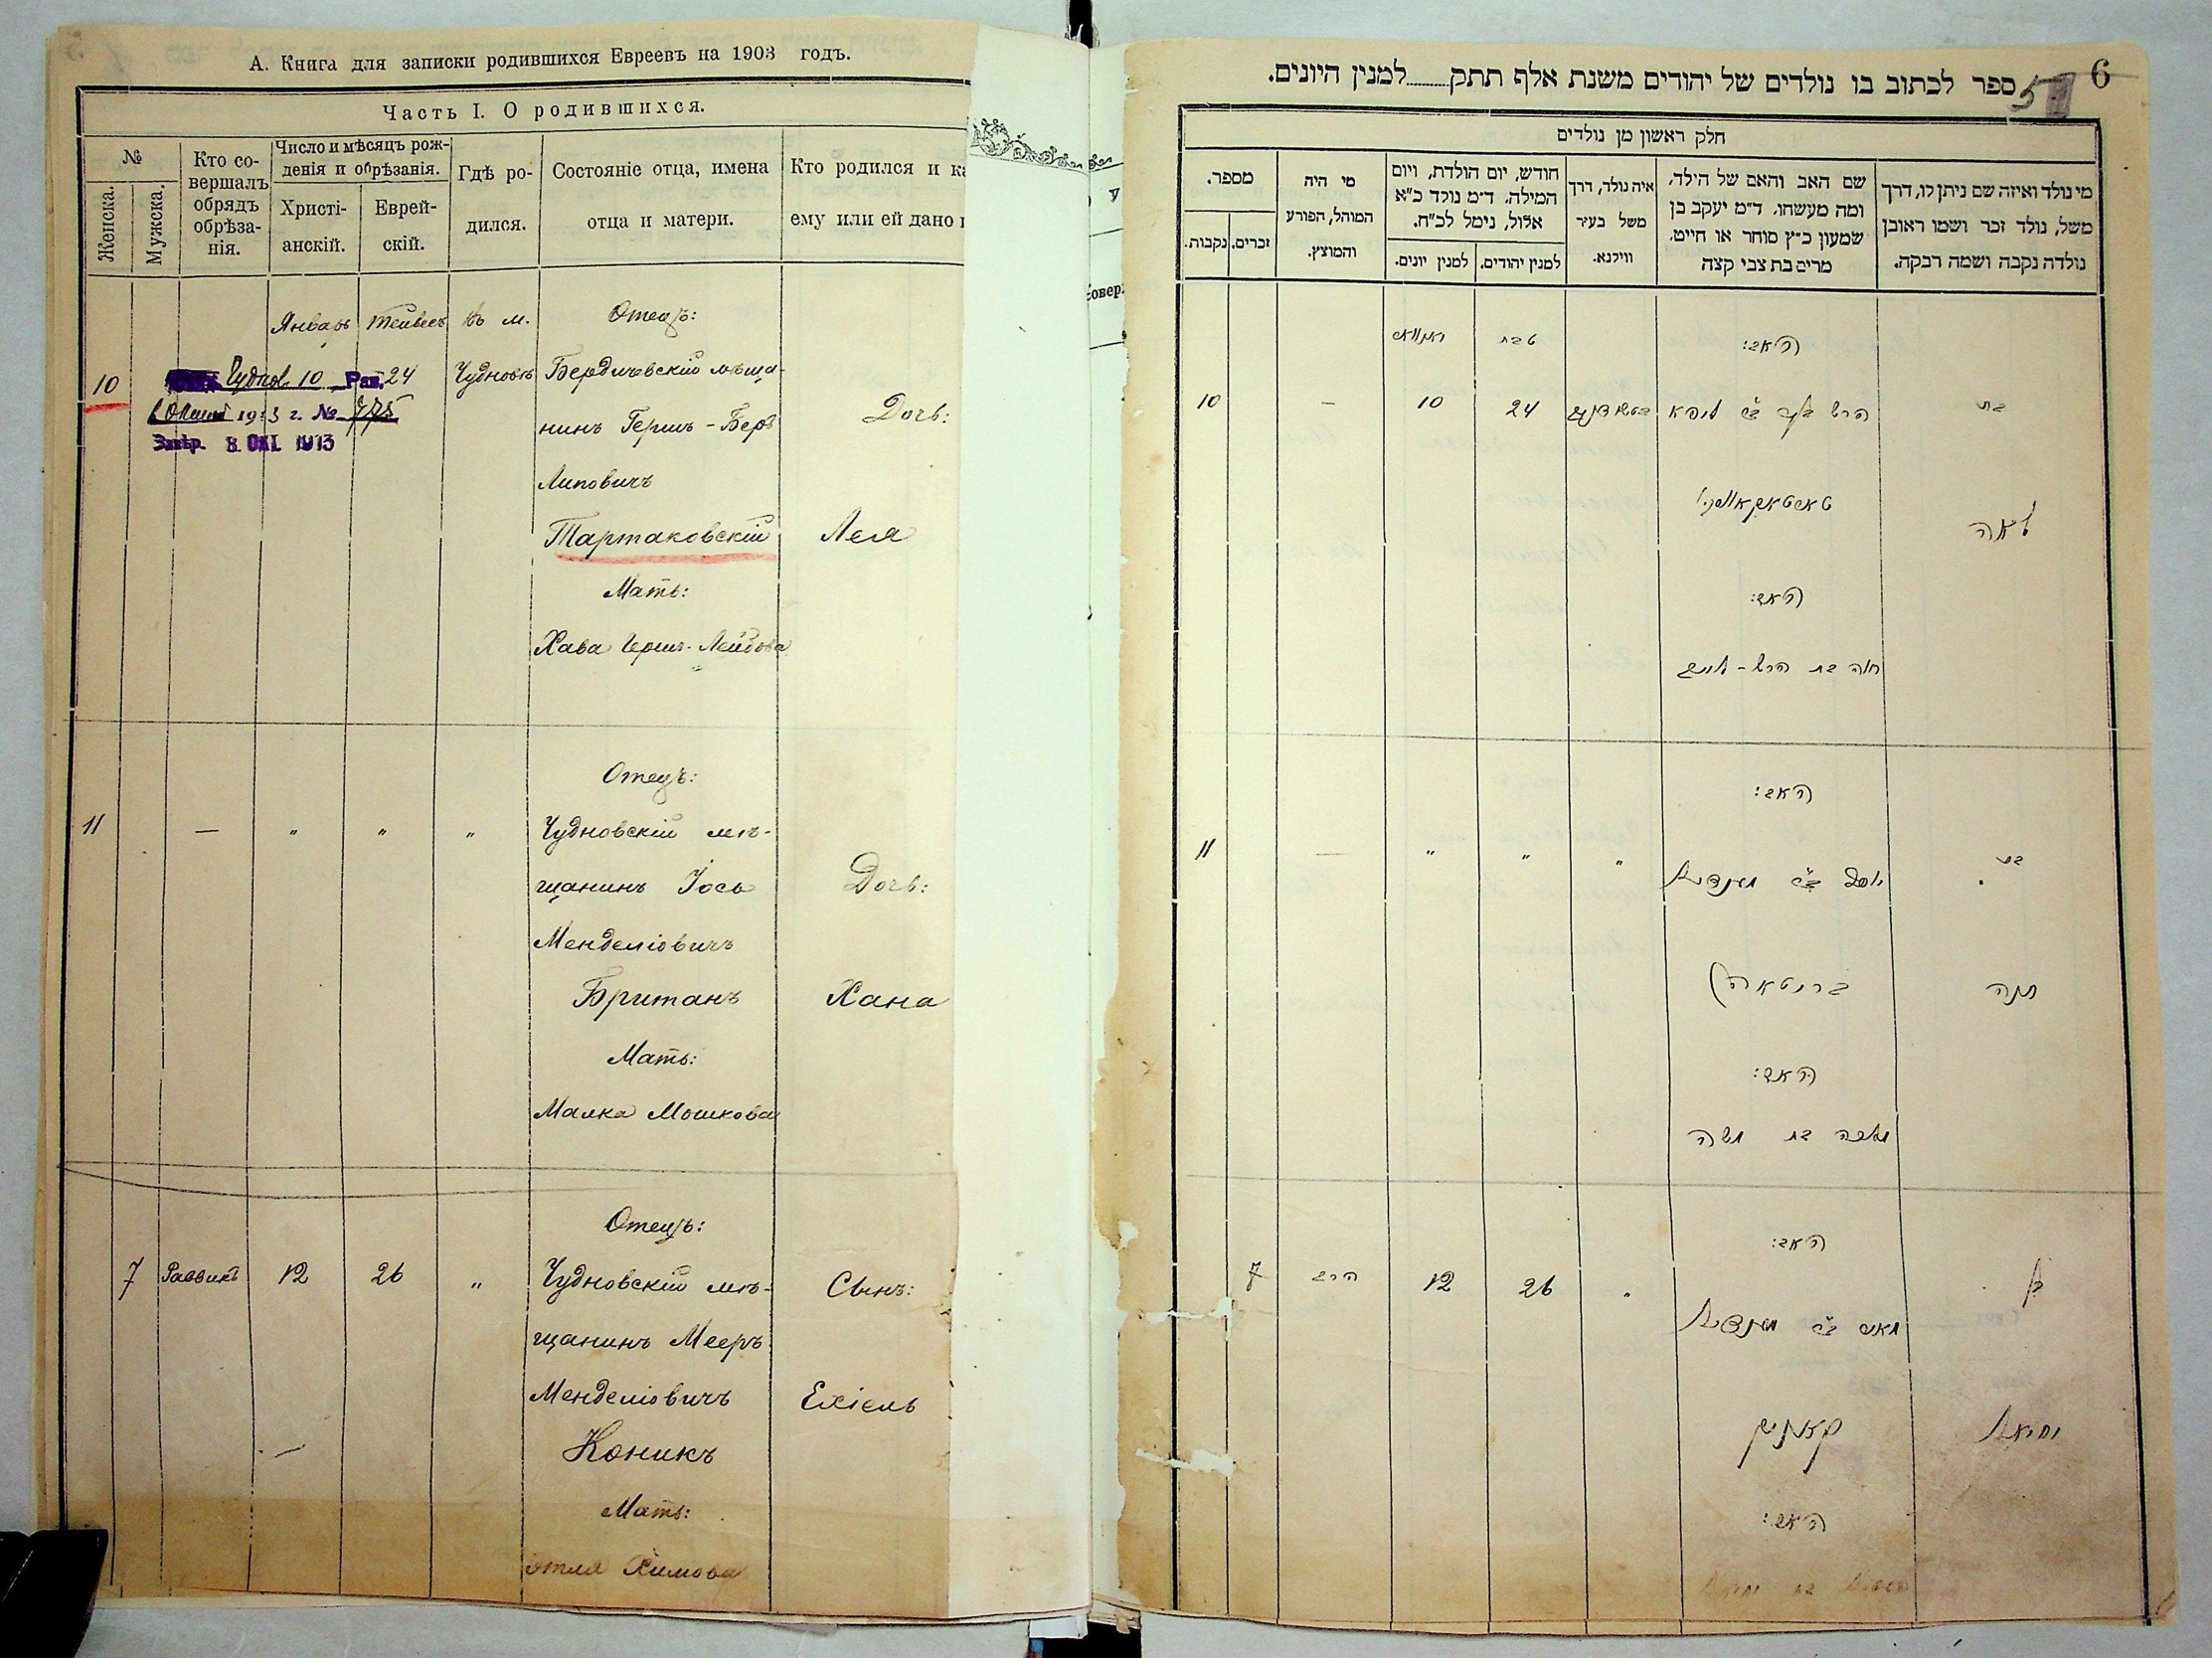 А. Книга для записки родившихся Евреевъ на 1903 годъ.
Часть I. О родившихся.
№
Женска.
Мужска.
Кто со-
вершалъ
обрядъ
обрѣза-
нія.
Число и мѣсяцъ рож-
денія и обрѣзанія.
Христі-
анскій.
Еврей-
скій.
Гдѣ ро-
дился.
Состояніе отца, имена
отца и матери.
Кто родился и ка
ему или ей дано и
Январь Тейвесъ въ м. Отецъ:
10 Чуднов. 10 Рав. 24 Чудновѣ Бердичевскій мѣща-
1913 г. № 775
нинъ Гершъ-Беръ Дочь:
8 ОКТ. 1913
Липовичъ
Тартаковскій Лея
Мать:
Хава Гершъ-Лейбова
Отецъ:
11 — " " " Чудновскій мѣ-
щанинъ Іось Дочь:
Менделіовичъ
Британъ Хана
Мать:
Малка Мошкова
Отецъ:
7 Раввинъ 12 26 " Чудновскій мѣ- Сынъ:
щанинъ Мееръ
Менделіовичъ Ехіель
Коникъ
Мать:
Химова
6
5
ספר לכתוב בו נולדים של יהודים משנת אלף תתק........למנין היונים.
חלק ראשון מן נולדים
מי נולד ואיזה שם ניתן לו, דרך
משל, נולד זכר ושמו ראובן
נולדה נקבה ושמה רבקה.
שם האב והאם של הילד,
ומה מעשהו, ד"מ יעקב בן
שמעון כ"ץ סוחר או חייט,
מרים בת צבי קצה
איה נולד, דרך
משל בעיר
ווילנא.
חודש, יום הולדת, ויום
המילה, ד"מ נולד כ"א
אלול, נימל לכ"ח.
למנין יהודים.
למנין יונים.
מי היה
המוהל, הפורע
והמוצץ.
מספר.
זכרים.
נקבות.
האב: טבת יאנואר
בת הרש בער ב"ר ליפא 24 10 — 10
טארטאקאווסקי
לאה
האם:
חוה בת הרש-לייב
האב:
בת יוסף ב"ר מענדיל " " " — 11
חנה בריטאן
האם:
מלכה בת משה
האב:
בן " 26 12 הרב 7
מאיר ב"ר מענדיל
יחיאל קאניק
האם: